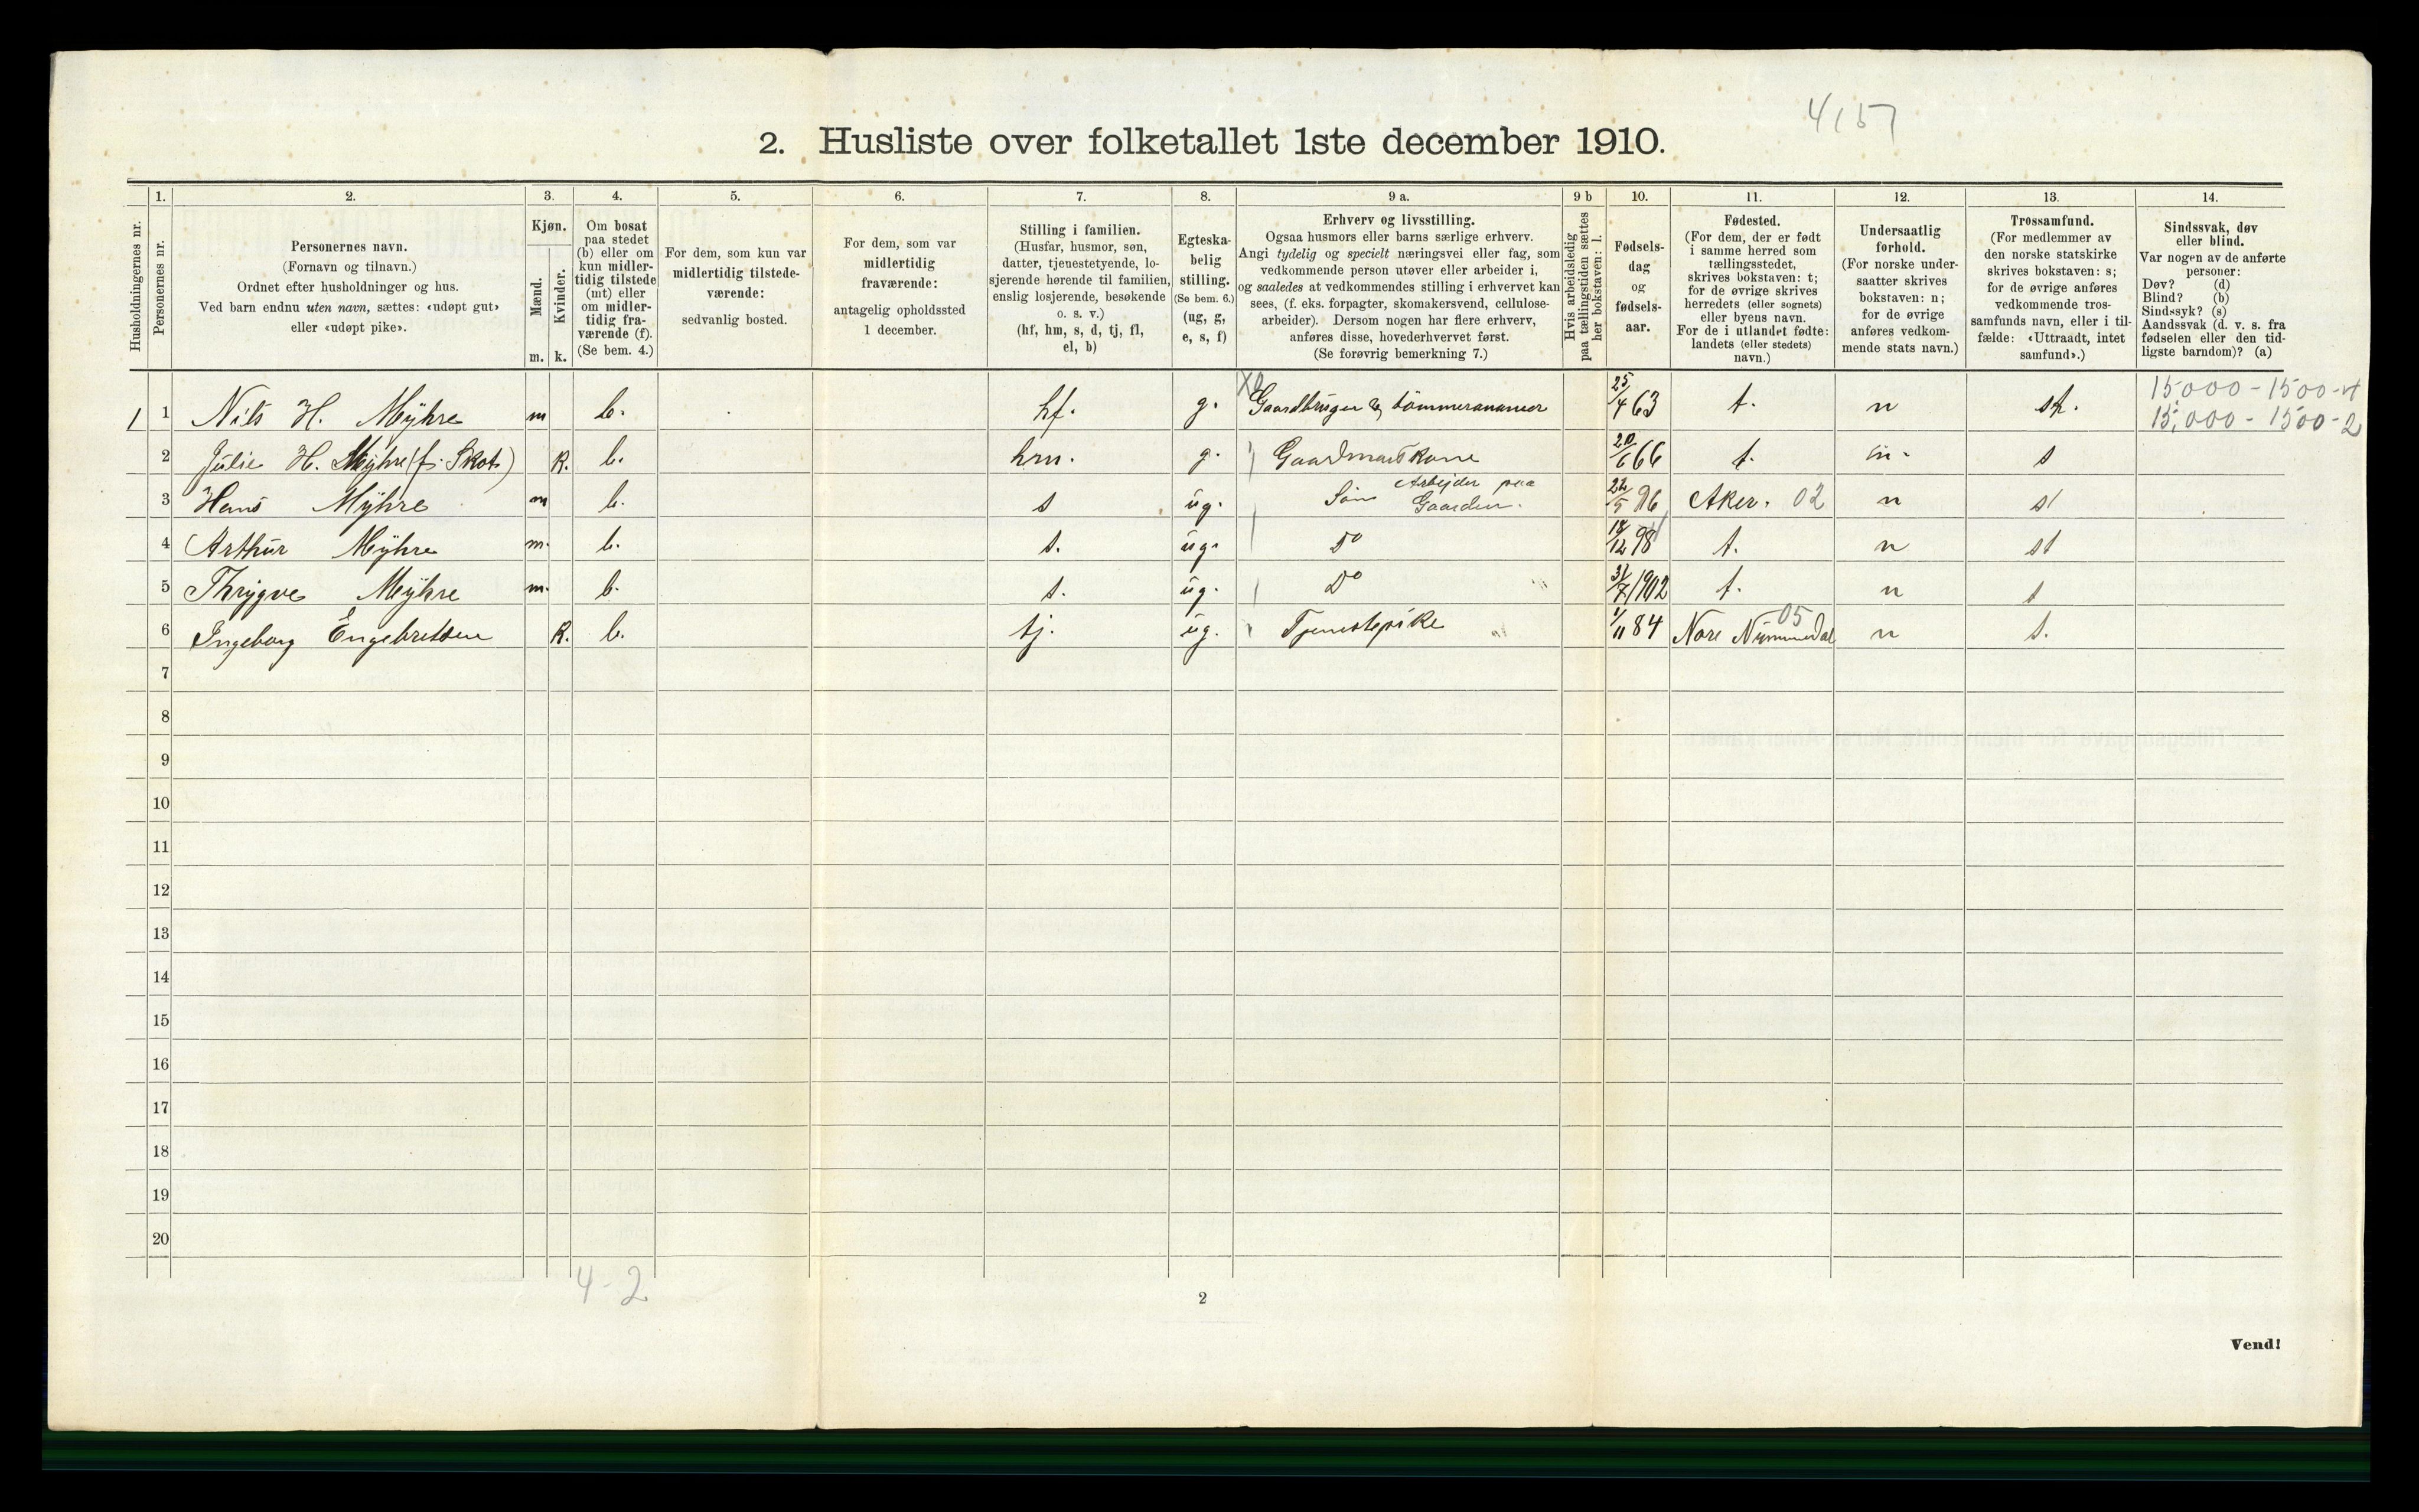 4157
2. Husliste over folketallet 1ste december 1910.
Husholdningernes nr.
1.
Personernes nr.
2.
Personernes navn.
(Fornavn og tilnavn.)
Ordnet efter husholdninger og hus.
Ved barn endnu uten navn, sættes: «udøpt gut»
eller «udøpt pike».
3.
Kjøn.
Mænd.
Kvinder.
m. k.
4.
Om bosat
paa stedet
(b) eller om
kun midler-
tidig tilstede
(mt) eller
om midler-
tidig fra-
værende (f).
(Se bem. 4.)
5.
For dem, som kun var
midlertidig tilstede-
værende:
sedvanlig bosted.
6.
For dem, som var
midlertidig
fraværende:
antagelig opholdssted
1 december.
7.
Stilling i familien.
(Husfar, husmor, søn,
datter, tjenestetyende, lo-
sjerende hørende til familien,
enslig losjerende, besøkende
o. s. v.)
(hf, hm, s, d, tj, fl,
el, b)
8.
Egteska-
belig
stilling.
(Se bem. 6.)
(ug, g,
e, s, f)
9 a.
Erhverv og livsstilling.
Ogsaa husmors eller barns særlige erhverv.
Angi tydelig og specielt næringsvei eller fag, som
vedkommende person utøver eller arbeider i,
og saaledes at vedkommendes stilling i erhvervet kan
sees, (f. eks. forpagter, skomakersvend, cellulose-
arbeider). Dersom nogen har flere erhverv,
anføres disse, hovederhvervet først.
(Se forøvrig bemerkning 7.)
9 b
Hvis arbeidsledig
paa tællingstiden sættes
her bokstaven: l.
10.
Fødsels-
dag
og
fødsels-
aar.
11.
Fødested.
(For dem, der er født
i samme herred som
tællingsstedet,
skrives bokstaven: t;
for de øvrige skrives
herredets (eller sognets)
eller byens navn.
For de i utlandet fødte:
landets (eller stedets)
navn.)
12.
Undersaatlig
forhold.
(For norske under-
saatter skrives
bokstaven: n;
for de øvrige
anføres vedkom-
mende stats navn.)
13.
Trossamfund.
(For medlemmer av
den norske statskirke
skrives bokstaven: s;
for de øvrige anføres
vedkommende tros-
samfunds navn, eller i til-
fælde: «Uttraadt, intet
samfund».)
14.
Sindssvak, døv
eller blind.
Var nogen av de anførte
personer:
Døv? (d)
Blind? (b)
Sindssyk? (s)
Aandssvak (d. v. s. fra
fødselen eller den tid-
ligste barndom)? (a)
15000 - 1500 - 4
1 1 Nils H. Myhre m b. hf. g. Gaardbruger & tømmer 25/4 63 t. n 15,000 - 1500 - 2
2 Julie H. Myhre (f. Skot) k. b. hm. g. Gaardmandskone 20/6 66 t. n. s
3 Hans Myhre m b. s ug. Søn Arbejder paa Gaarden. 96 Aker. 02 n s
4 Arthur Myhre m. b. s. ug. Do 98 t. n s
5 Thrygve Myhre m. b. s. ug. Do 1902 t. n s
6 Ingeborg Engebretsen k. b. tj. ug. Tjenestepike 1/11 84 Nore Nummedal 05 n s.
7
8
9
10
11
12
13
14
15
16
17
18
19
20
4 - 2
2
Vend!